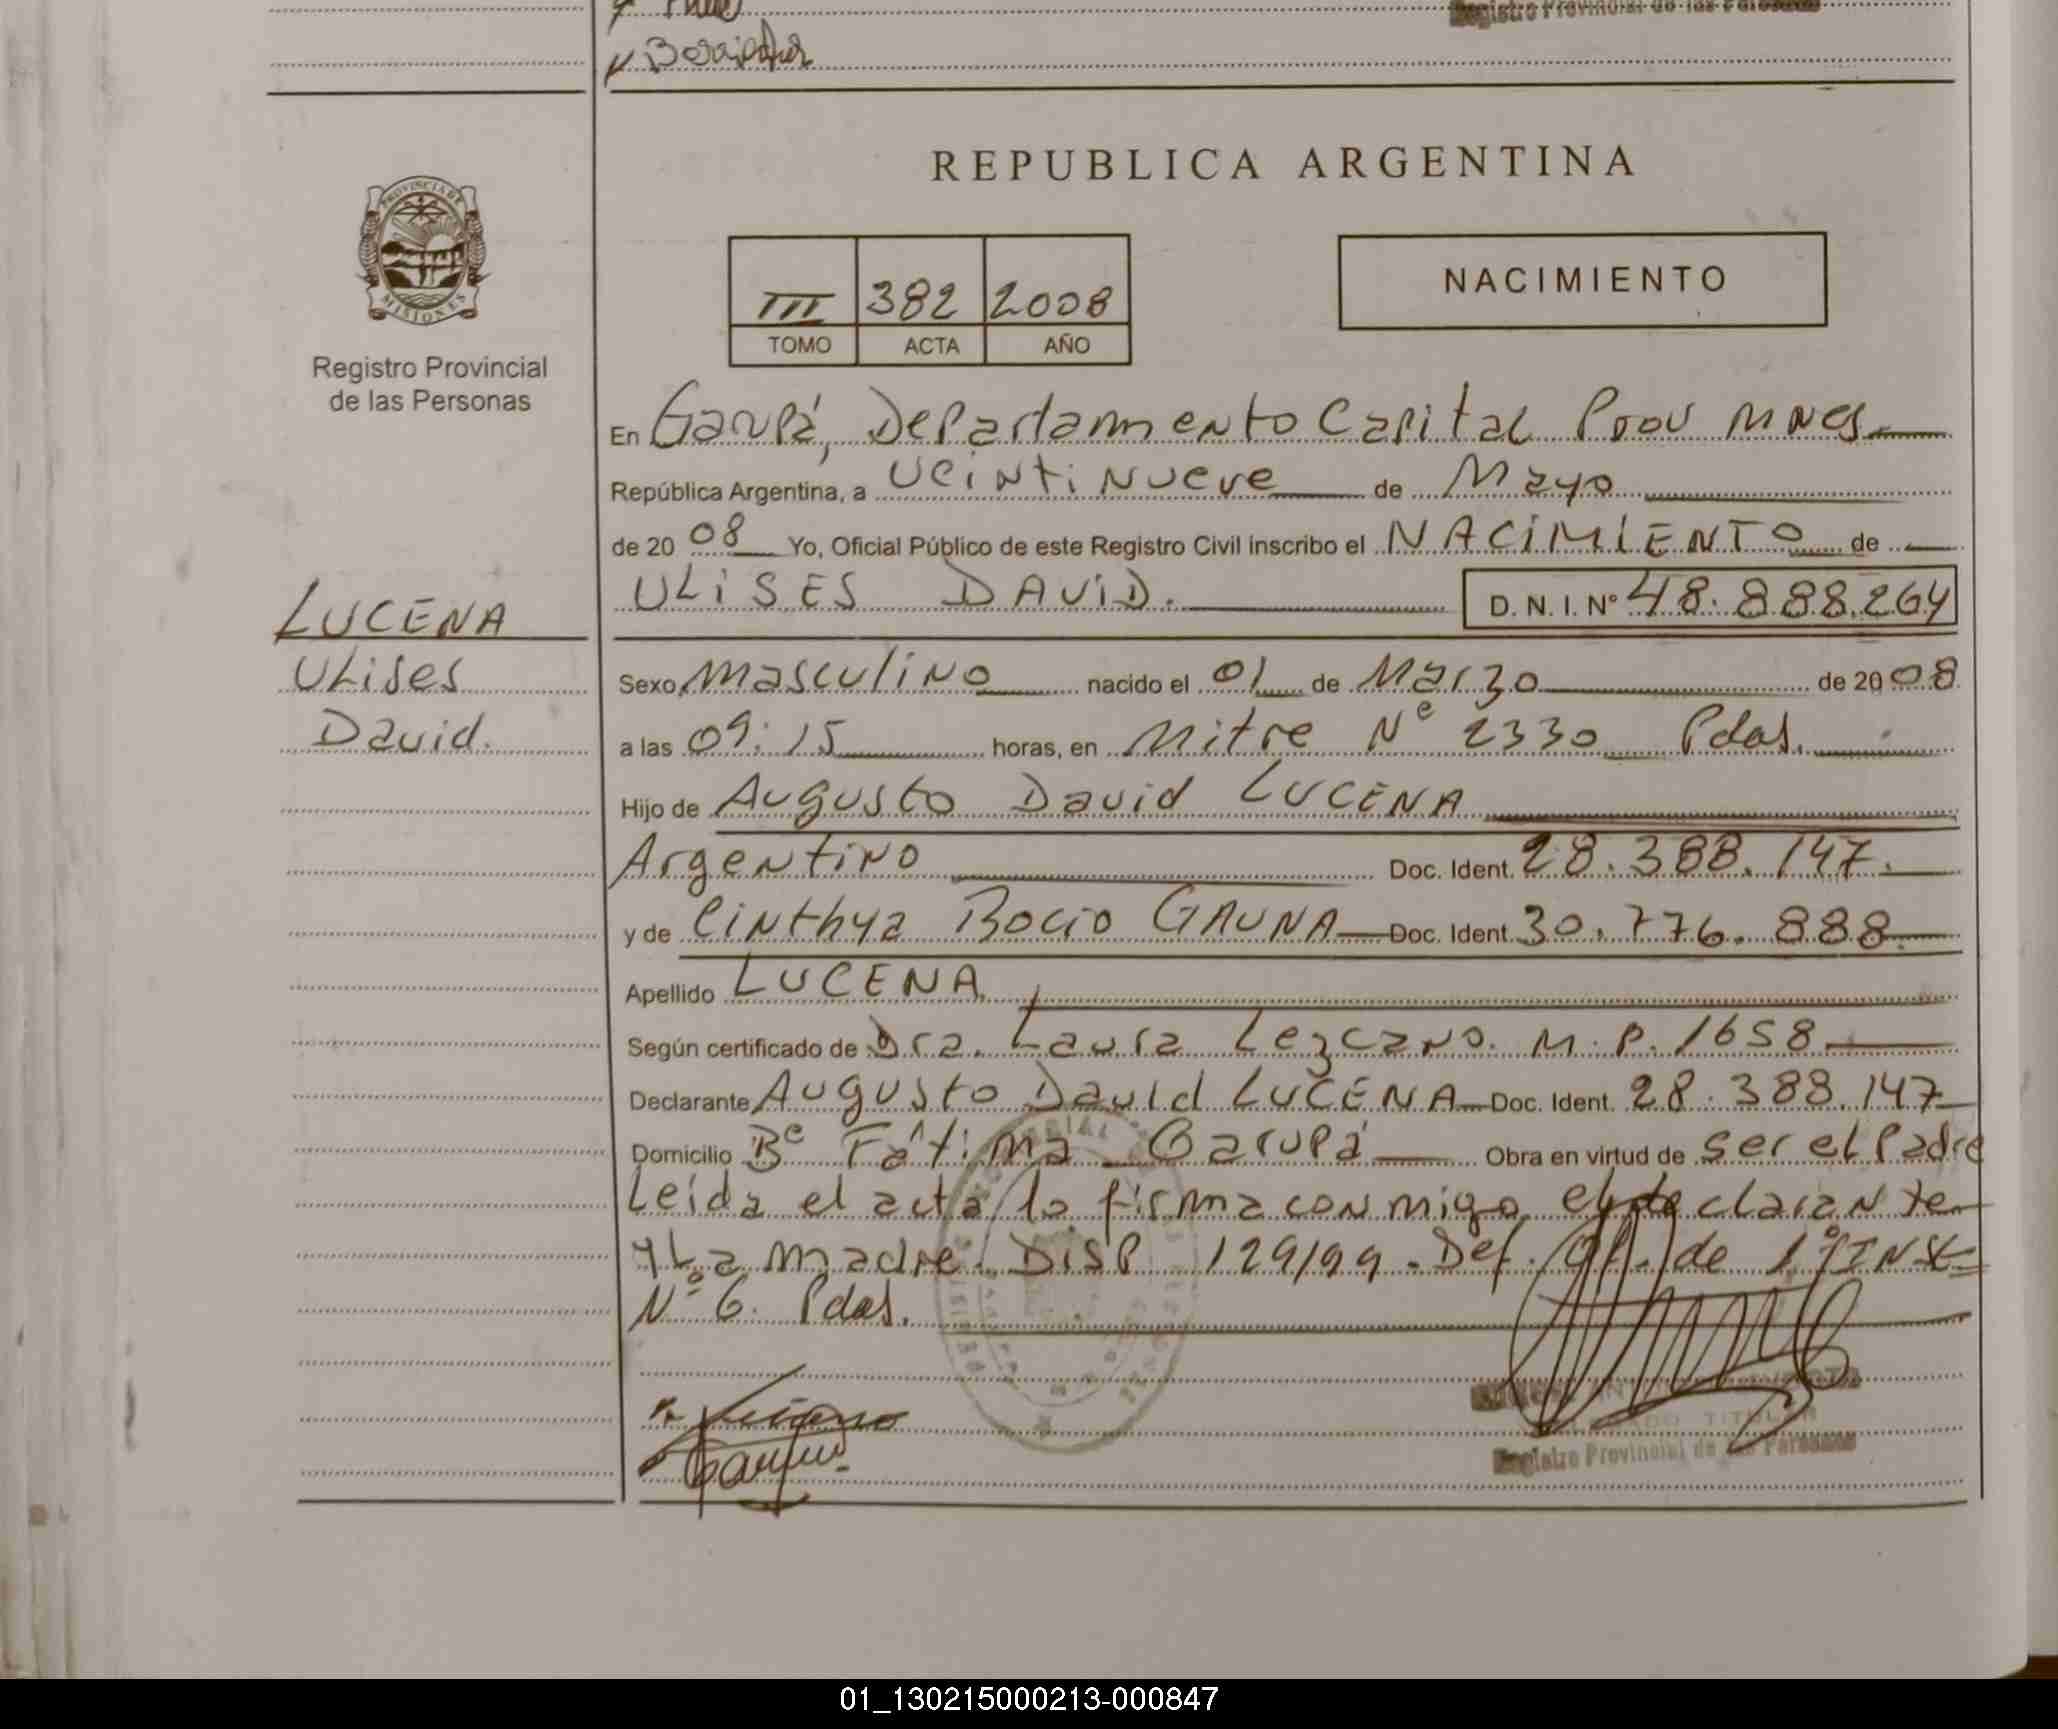 Registro Provincial de las Personas
REPUBLICA ARGENTINA
PROVINCIA DE
MISIONES
Registro Provincial
de las Personas
III 382 2008
TOMO ACTA AÑO
NACIMIENTO
En Garupá, Departamento Capital Prov MNES
República Argentina, a veintinueve de Mayo
de 20 08 Yo, Oficial Público de este Registro Civil inscribo el NACIMIENTO de
ULISES DAVID. D. N. I. Nº 48.888.264
LUCENA
Ulises
David.
Sexo Masculino nacido el 01 de Marzo de 2008
a las 09:15 horas, en Mitre Nº 2330 Pdas.
Hijo de Augusto David LUCENA
Argentino Doc. Ident. 28.388.147.
y de Cinthya Rocio GAUNA Doc. Ident. 30.776.888.
Apellido LUCENA
Según certificado de Dra. Laura Lezcano. M.P. 1658
Declarante Augusto David LUCENA Doc. Ident. 28.388.147
Domicilio Bº Fátima Garupá Obra en virtud de ser el Padre
Leida el acta la firma conmigo el declarante
y La madre. DISP 129/99. Def. Of. de 1º INST
Nº 6. Pdas.
TITULAR
Registro Provincial de las Personas
01_130215000213-000847